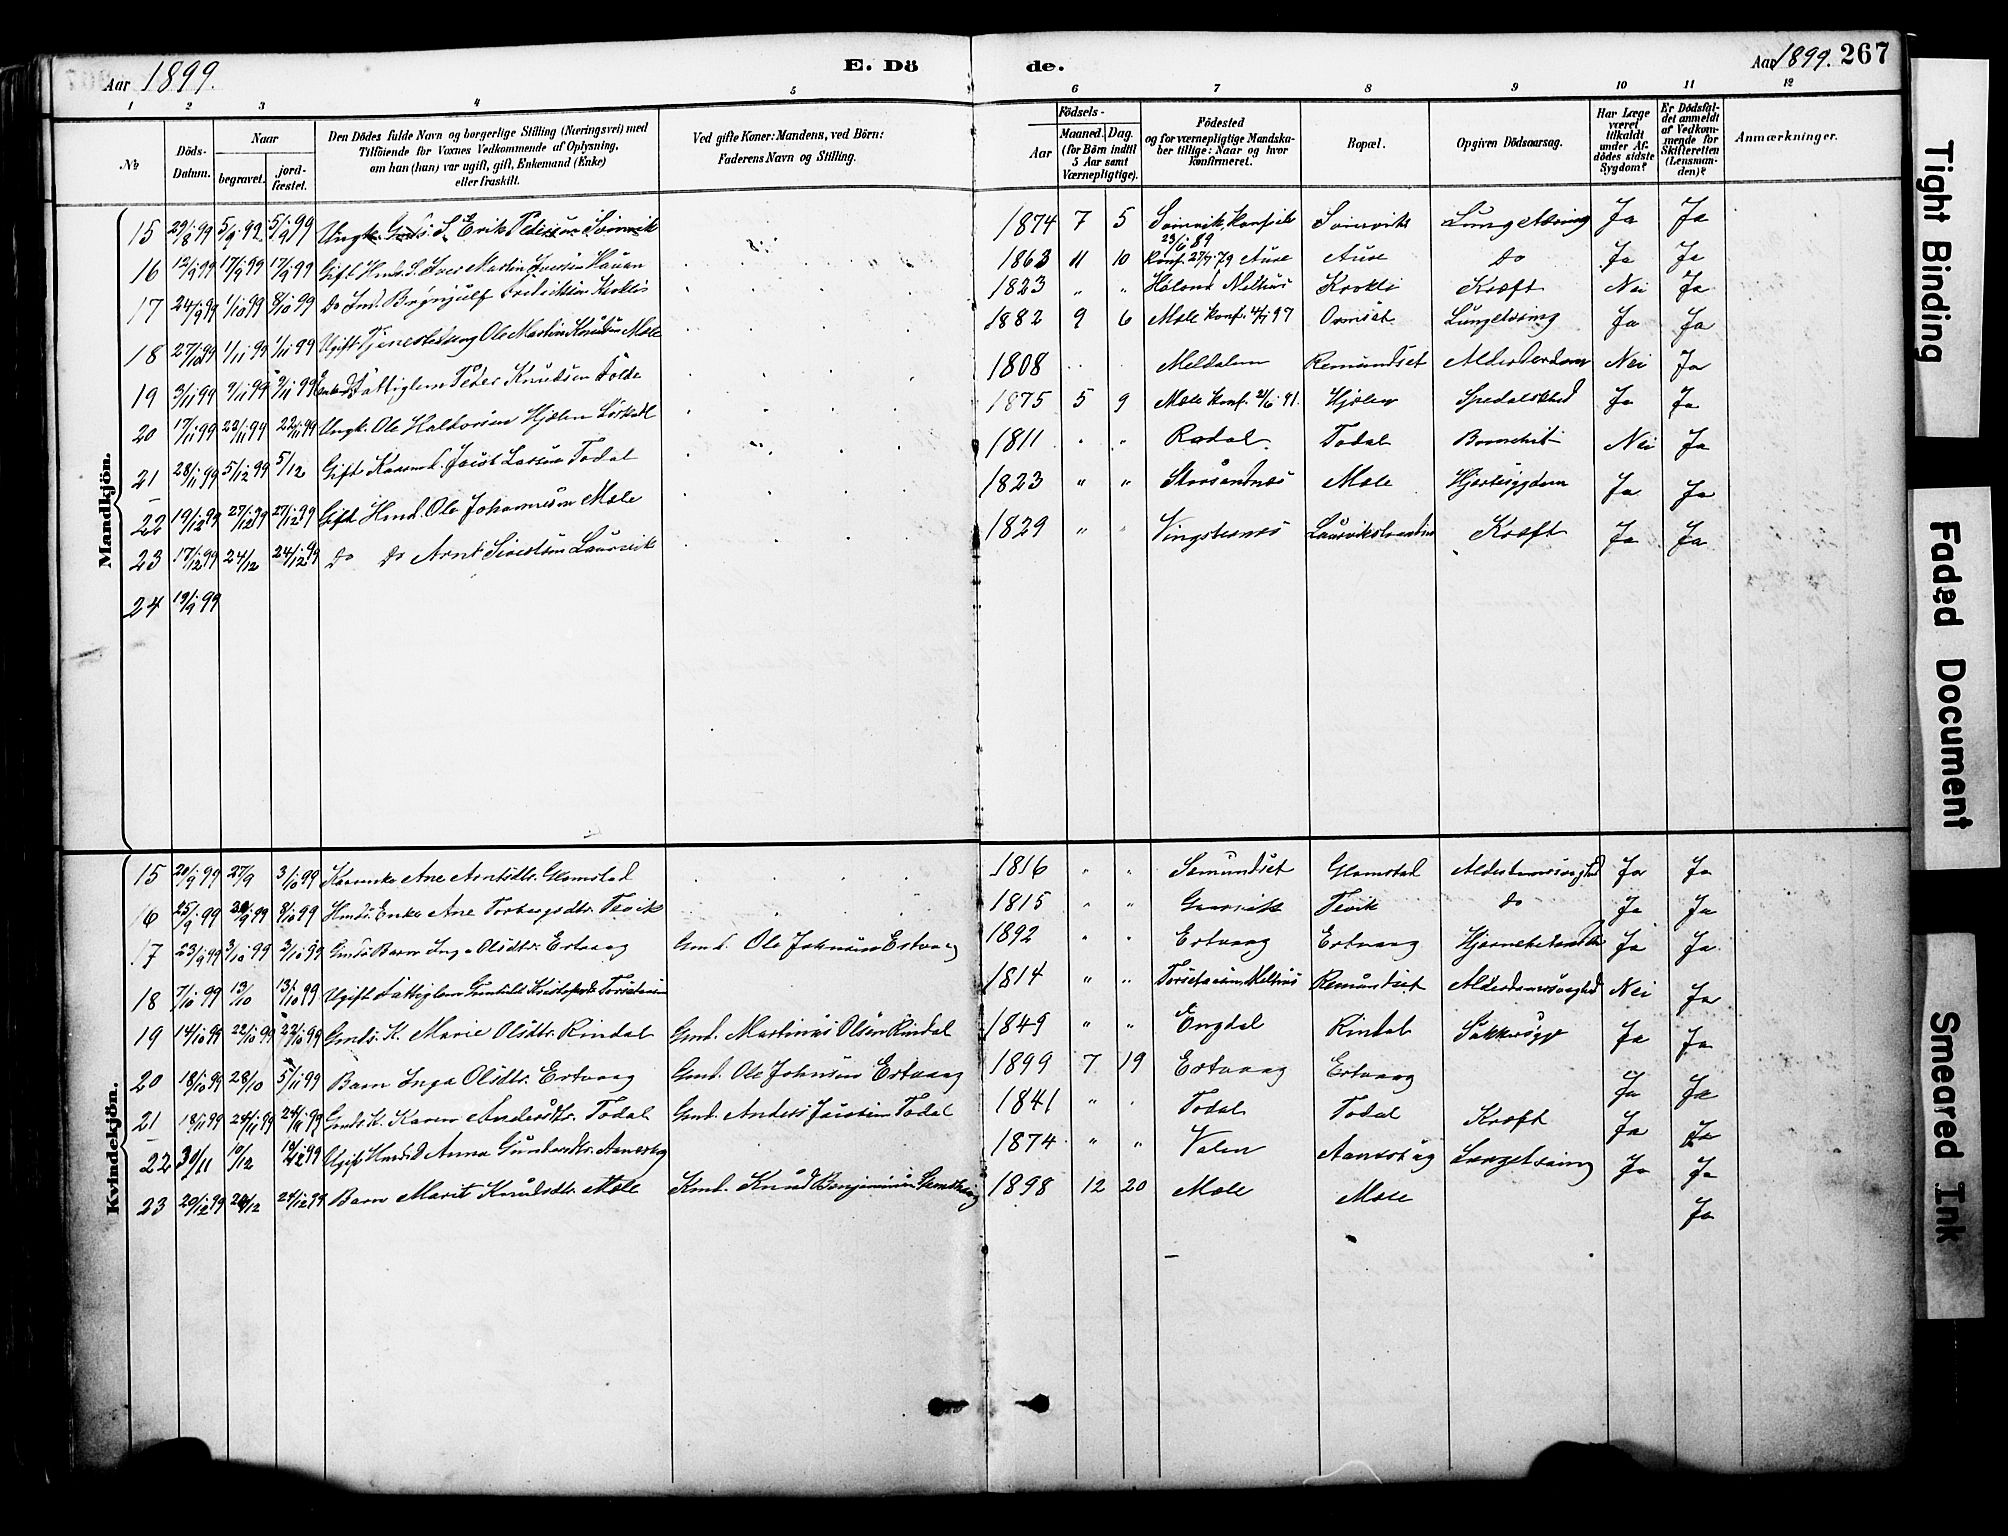 Aar 1899. E. Dö de. Aar 1899. 267
1 2 3 4 5 6 7 8 9 10 11 12
No Döds-Datum. Naar begravet. jordfæstet. Den Dödes fulde Navn og borgerlige Stilling (Næringsvei) med Tilföiende for Voxnes Vedkommende af Oplysning, om han (hun) var ugift, gift, Enkemand (Enke) eller fraskilt. Ved gifte Koner: Mandens, ved Börn: Faderens Navn og Stilling. Födsels- Aar Maaned. Dag. (for Börn indtil 5 Aar samt Værnepligtige). Födested og for værnepligtige Mandskaber tillige: Naar og hvor Konfirmeret. Bopæl. Opgiven Dödsaarsag. Har Læge været tilkaldt under Afdödes sidste Sygdom? Er Dödsfaldet anmeldt af Vedkommende for Skifteretten (Lensmanden)? Anmærkninger.
Mandkjön.
15 29/8 99 5/9 99 5/9 99 Ungk. Gmds. S. Erik Pedersen 1874 7 5 Konf. 23/6 89 Lungetæring Ja Ja
16 12/9 99 17/9 99 17/9 99 Gift Hmds. S. Iver Martin Iversen Hauan 1863 11 10 Konf. 27/7 79 Aure Aure Do Ja Ja
17 24/9 99 1/10 99 8/10 99 Do Brynjulf Fredriksen 1823 " " Meltius Kræft Nei Ja
18 27/10 99 1/11 99 1/11 99 Ugift Ole Martin Knudsen Mæle 1882 9 6 Mæle Konf. 97 Lungetæring Ja Ja
19 3/11 99 9/11 99 9/11 99 Fattiglem Peder Knudsen 1808 Meldalen Remundset Nei Ja
20 17/11 99 22/11 99 22/11 99 Ungk. Ole Haldorsen Hjælen 1875 5 9 Mæle Konf. 2/6 91. Hjælen Spedalskhed Ja Ja
21 28/11 99 5/12 99 5/12 Gift Todal 1811 " " Todal Nei Ja
22 19/12 99 27/12 99 27/12 99 Gift Hmd. Ole Johannesen Mæle 1823 " " Mæle Hjertesygdom Ja Ja
23 17/12 99 24/12 24/12 99 Do Do Arnt Sivertsen Laurvik 1829 " " Kræft Ja Ja
24 19/9 99
Kvindekjön.
15 20/9 99 27/9 3/10 99 Ane Arntsdtr. Glomstad 1816 " " Semundset Glomstad Ja Ja
16 25/9 99 30/9 99 8/10 99 Hmds. Enke Ane Torbergsdtr. Tevik 1815 " " Tevik Do Ja Ja
17 23/9 99 3/10 99 3/10 99 Gmds Barn Inga Olsdtr. Ertvaag Gmd. Ole Johnsen Ertvaag 1892 " " Ertvaag Ertvaag Ja Ja
18 7/10 99 13/10 13/10 99 Ugift Fattiglem 1814 " " Remundset Nei Ja
19 14/10 99 22/10 99 22/10 99 Gmds. K. Marie Olsdtr. Rindal Gmd. Martinus Olsen Rindal 1849 " " Engdal Rindal Ja Ja
20 18/10 99 28/10 5/11 99 Barn Inga Olsdtr. Ertvaag Gmd. Ole Johnsen Ertvaag 1899 7 19 Ertvaag Ertvaag Ja Ja
21 18/11 99 24/11 99 24/11 99 Gmds K. Karen Andersdtr. Todal Gmd. Anders Todal 1841 " " Todal Todal Kræft Ja Ja
22 30/11 10/12 10/12 99 Ugift Anna Gundersdtr. 1874 " " Valen Lungetæring Ja Ja
23 20/12 99 24/12 24/12 99 Barn Marit Knudsdtr. Mæle Knud Benjaminsen 1898 12 20 Mæle Mæle Ja
Tight Binding
Faded Document
Smeared Ink